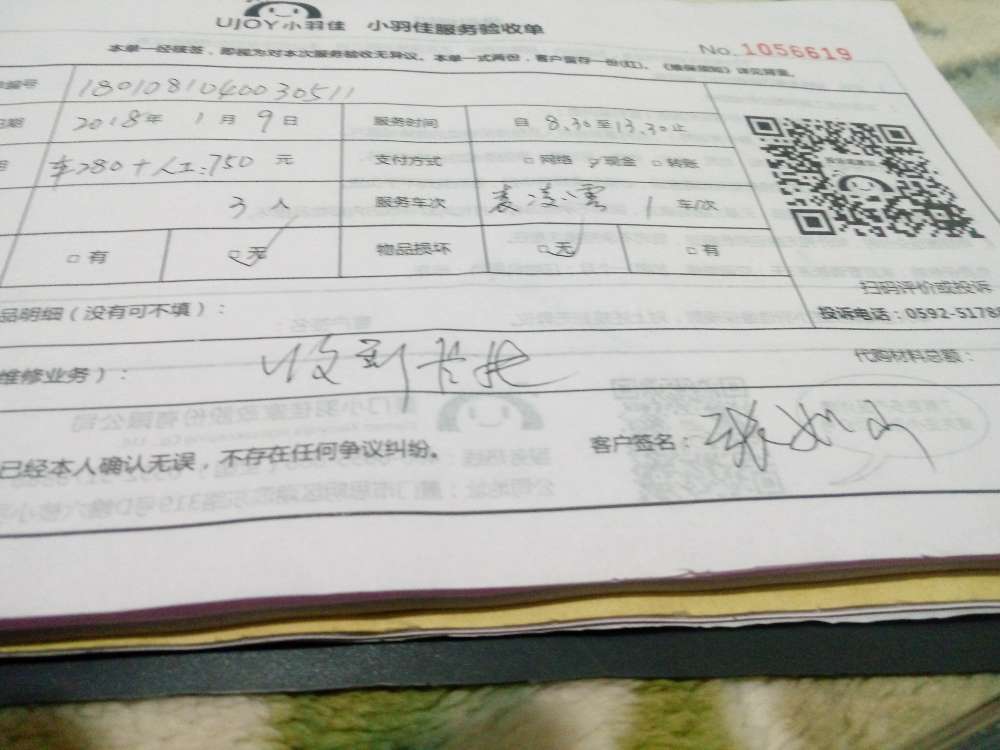 UJOY小羽佳 小羽佳服务验收单
No. 1056619
本单一经核签，即视为对本次服务验收无异议。本单一式两份，客户留存一份(红)。《维保须知》详见背面。
编号 1801081040030511
日期 2018年 1月 9日 服务时间 自 8.30至13.30止
车280+人工:750 元 支付方式 □网络 □现金 □转账
3 人 服务车次 袁凌小雷 1 车/次
□有 □无 物品损坏 □无 □有
扫码评价或投诉
品明细（没有可不填）：
投诉电话：0592-5178
维修业务）： 收到
代购材料总额：
已经本人确认无误，不存在任何争议纠纷。 客户签名：